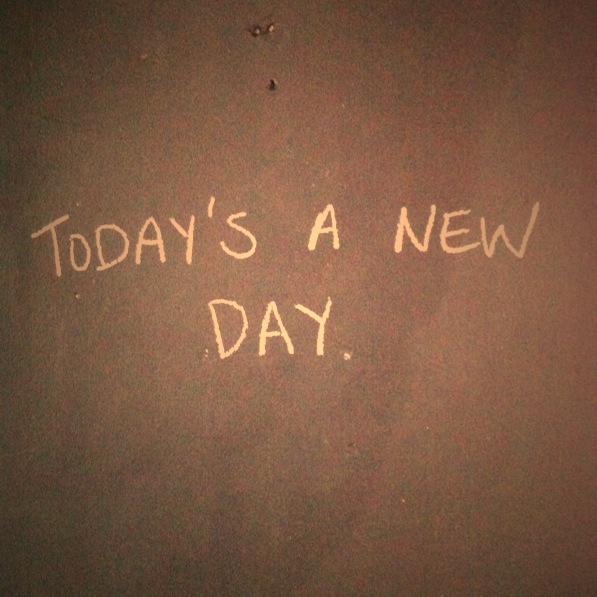 TODAY'S A NEW
DAY.